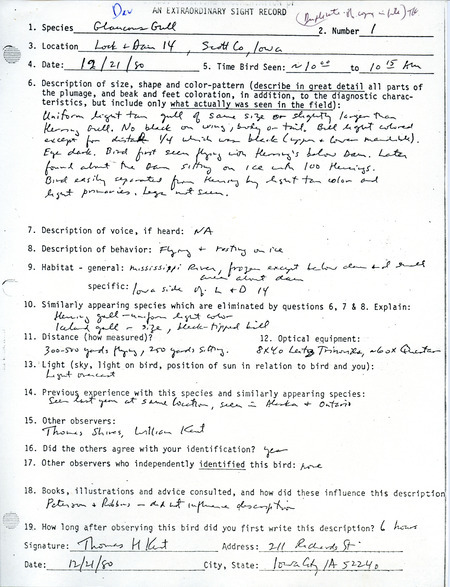 Dev
AN EXTRAORDINARY SIGHT RECORD (Duplicate of copy in file) THK
1. Species Glaucous Gull 2. Number 1
3. Location Lock + Dam 14, Scott Co, Iowa
4. Date: 12/21/80 5. Time Bird Seen: ~10 00 to 10 15 AM
6. Description of size, shape and color-pattern (describe in great detail all parts of
the plumage, and beak and feet coloration, in addition, to the diagnostic charac-
teristics, but include only what actually was seen in the field):
Uniform light tan gull of same size or slightly larger than
Herring Gull. No black on wing, body or tail. Bill light colored
except for distal 1/4 which was black (upper + lower mandible).
Eye dark. Bird first seen flying with Herring's below Dam. Later
found above the Dam sitting on ice with 100 Herrings.
Bird easily separated from Herring by light tan color and
light primaries. Legs not seen.
7. Description of voice, if heard: NA
8. Description of behavior: Flying + resting on ice
9. Habitat - general: Mississippi River, frozen except below dam and small
area above dam
specific: Iowa side of L + D 14
10. Similarly appearing species which are eliminated by questions 6, 7 & 8. Explain:
Herring gull - uniform light color
Iceland gull - size, black-tipped bill
11. Distance (how measured)? 12. Optical equipment:
300-500 yards flying, 250 yards sitting. 8X40 Leitz Trinovids, 40-60X Questar
13. Light (sky, light on bird, position of sun in relation to bird and you):
Light overcast
14. Previous experience with this species and similarly appearing species:
Seen last year at same location, seen in Alaska + Ontario
15. Other observers:
Thomas Shires, William Kent
16. Did the others agree with your identification? yes
17. Other observers who independently identified this bird: none
18. Books, illustrations and advice consulted, and how did these influence this description
Peterson + Robbins - did not influence description
19. How long after observing this bird did you first write this description? 6 hours
Signature: Thomas H Kent Address: 211 Richards St.
Date: 12/21/80 City, State: Iowa City IA 52240